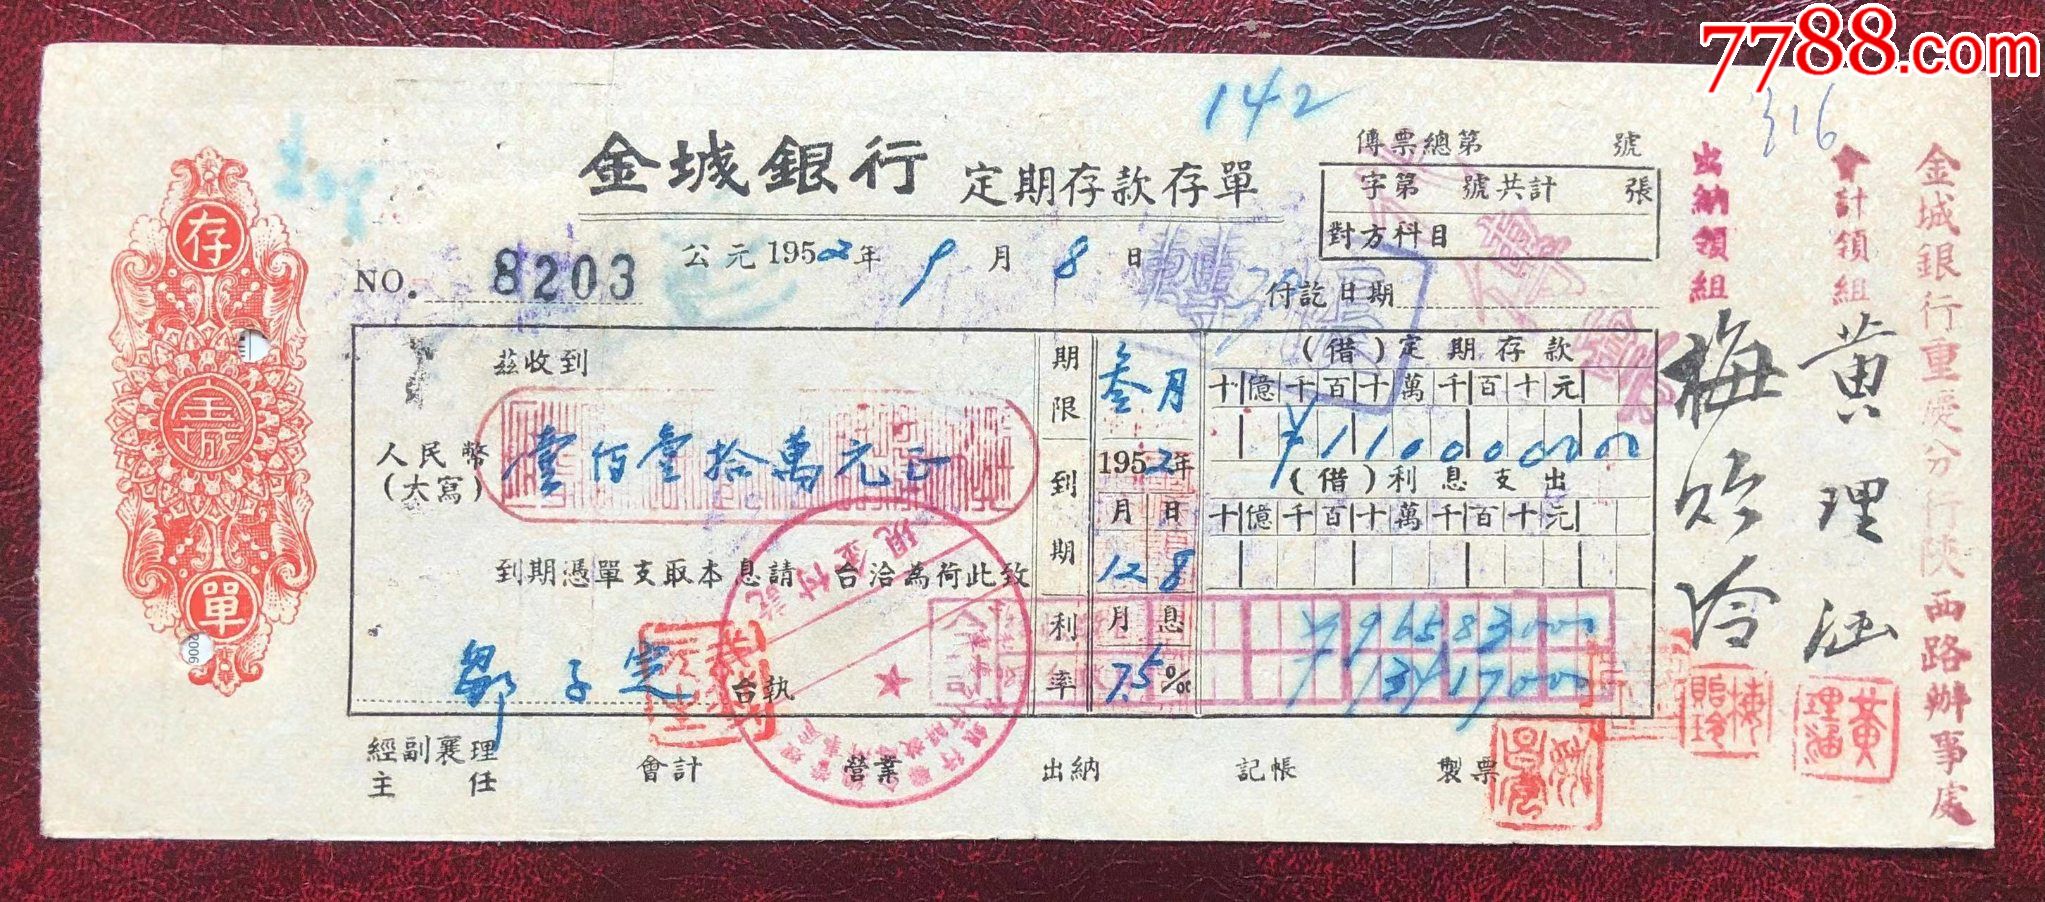 7788.com
142
316
金城銀行 定期存款存單
傳票總第 號
字第 號共計 張
對方科目
公元1952年9月8日
NO. 8203
付訖日期
存
金城
單
茲收到
人民幣
(大寫)
壹佰壹拾萬元正
到期憑單支取本息請 台洽為荷此致
鄒子 台執
期限
叁月
到期
1952年
月 日
12 8
利率
月息
7.5‱
(借)定期存款
十億千百十萬千百十元
¥110000000
(借)利息支出
十億千百十萬千百十元
現金付訖
經副襄理
主任
會計
營業
出納
記帳
製票
出納領組
梅貽玲
會計領組
黄理涵
金城銀行重慶分行陝西路辦事處
梅貽玲
黃理涵
9002